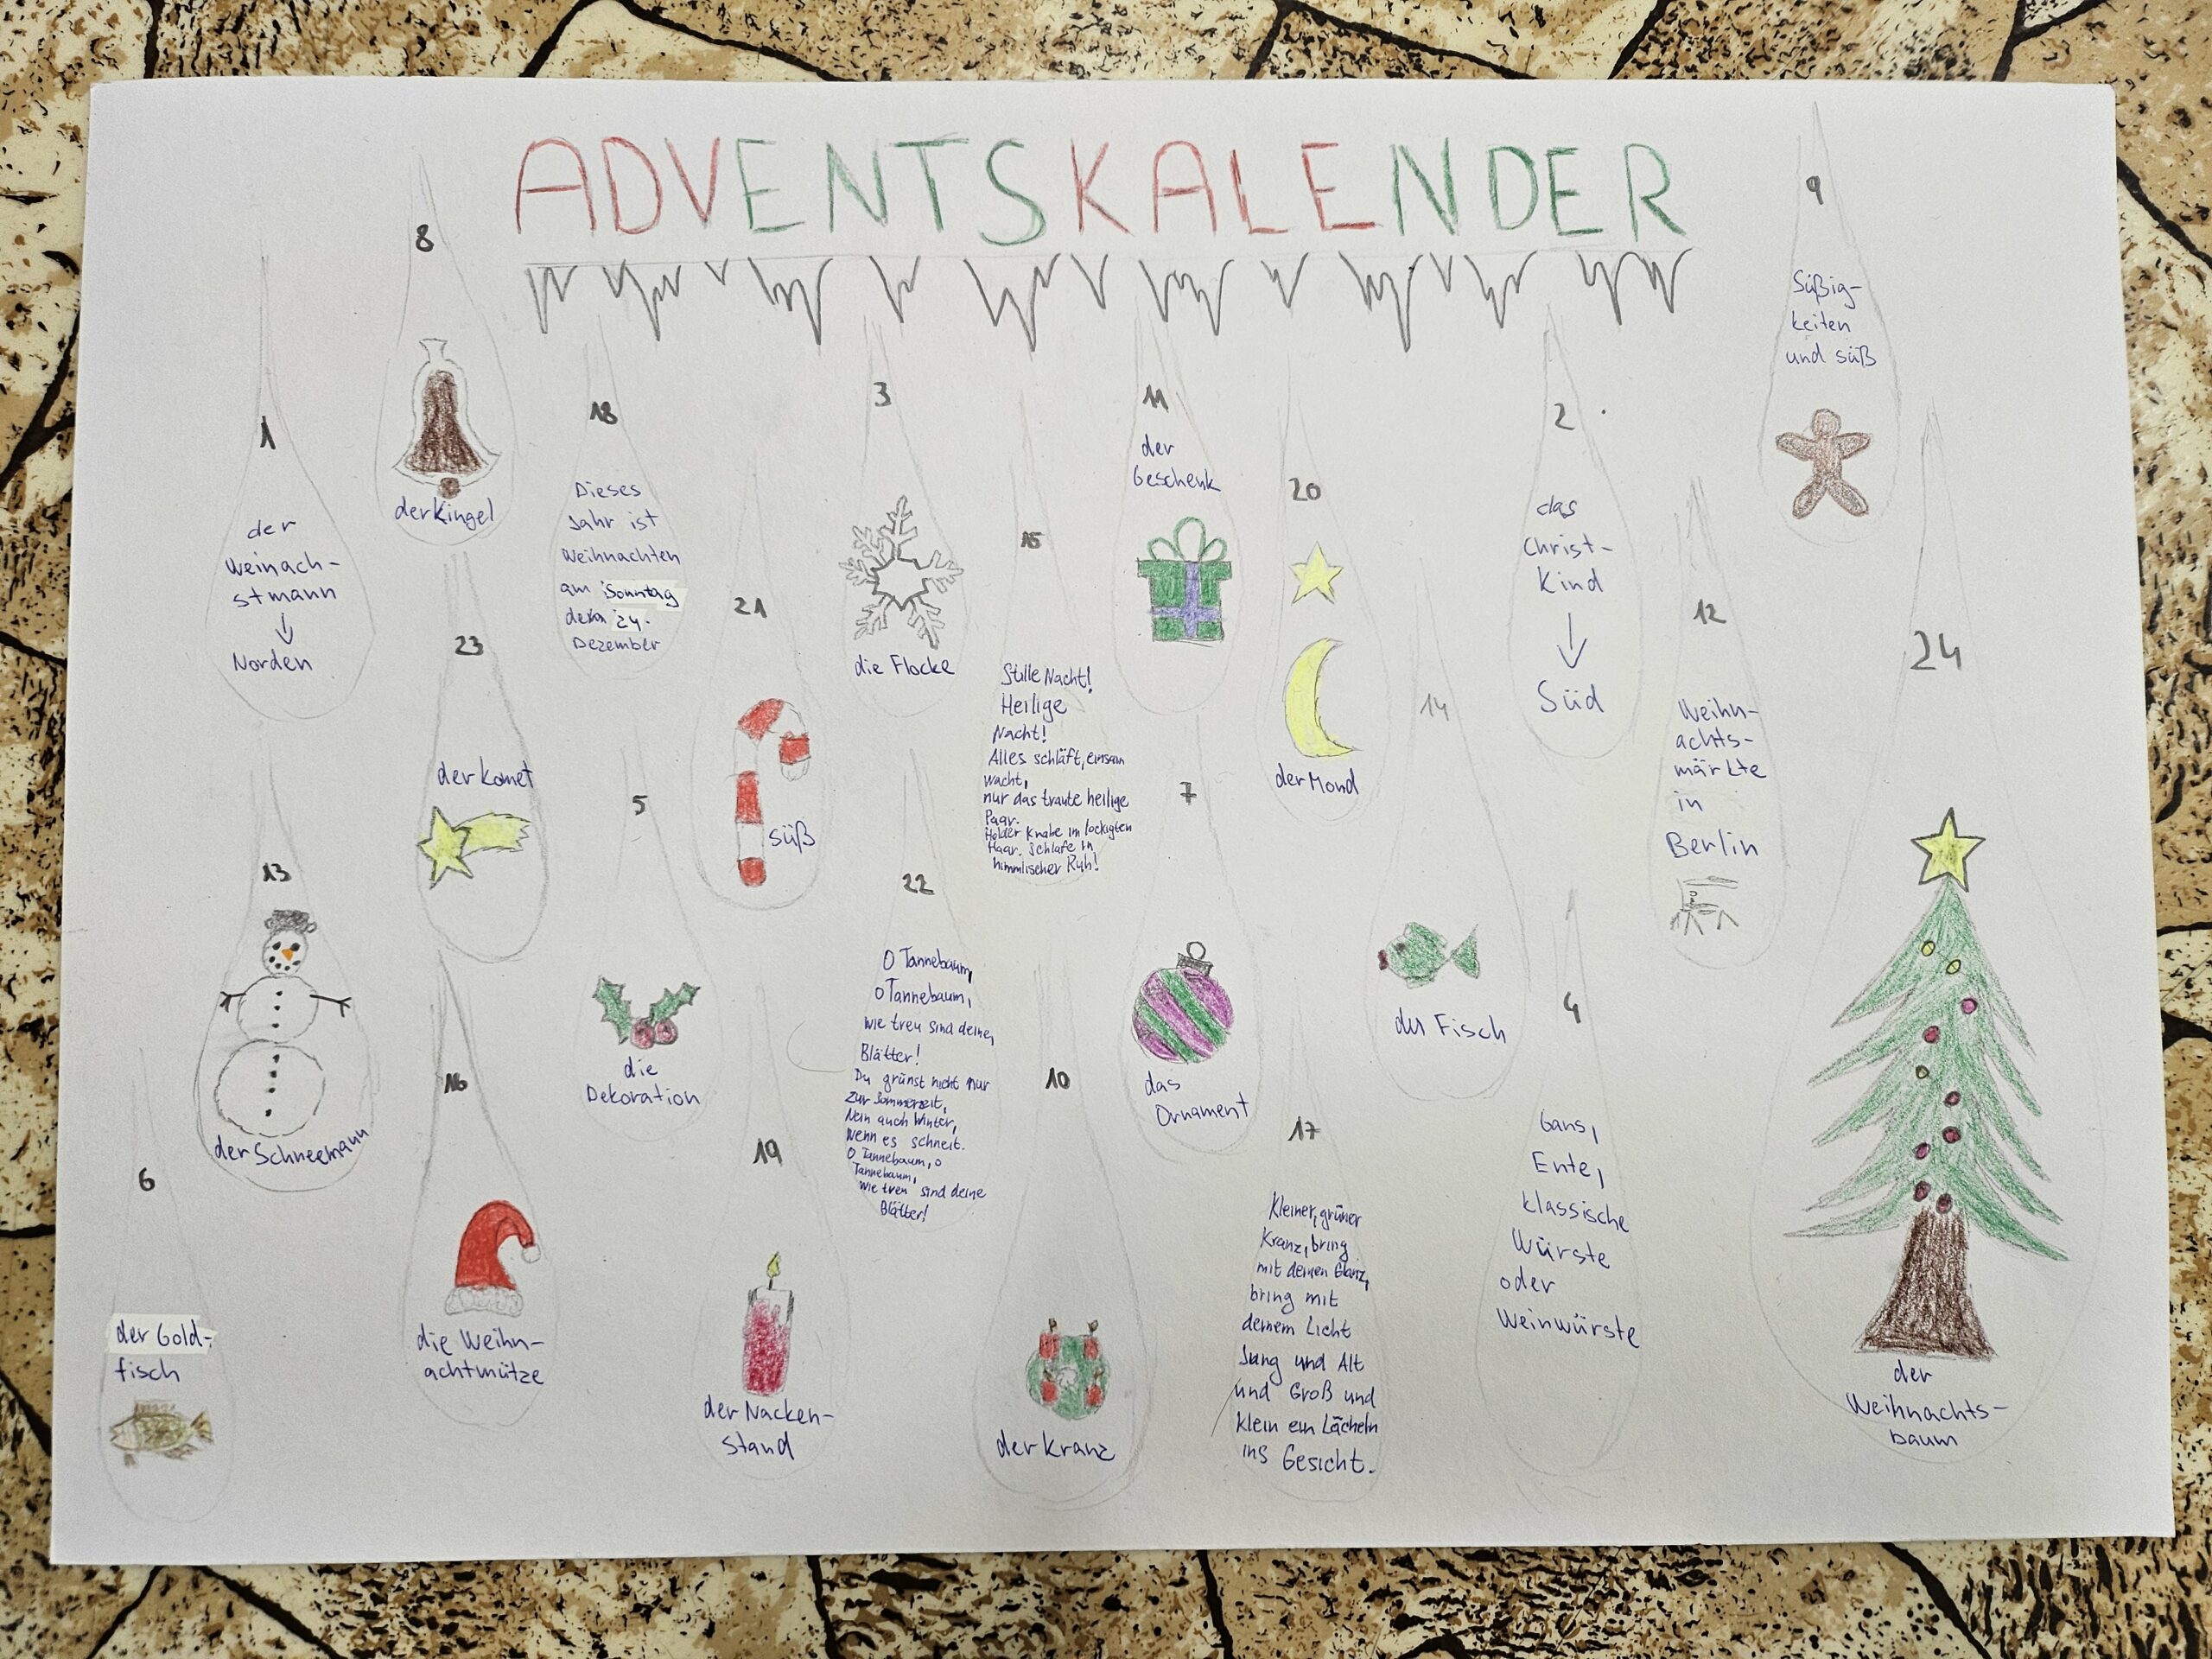 ADVENTSKALENDER
1
der
Weinach-
stmann
Norden
8
der Kingel
18
Dieses
Jahr ist
Weihnachten
am Sonntag
24.
Dezember
3
die Flocke
11
der
Geschenk
20
der Mond
2
das
Christ-
Kind
Süd
9
Süßig-
keiten
und süß
12
Weihn-
achts-
märkte
in
Berlin
24
der
Weihnachts-
baum
23
der Komet
21
süß
15
Stille Nacht!
Heilige
Nacht!
Alles schläft, einsam
wacht,
nur das traute heilige
Paar.
Holder Knabe im lockigten
Haar. Schlafe in
himmlischer Ruh!
14
der Fisch
13
der Schneemann
5
die
Dekoration
22
O Tannebaum,
O Tannebaum,
wie treu sind deine,
Blätter!
Du grünst nicht nur
zur Sommerzeit,
Nein auch Winter,
Wenn es schneit.
O Tannebaum, o
Tannebaum,
wie treu sind deine
Blätter!
7
das
Ornament
4
Gans,
Ente,
klassische
Würste
oder
Weinwürste
6
der Gold-
fisch
16
die Weihn-
achtmütze
19
der Nacken-
stand
10
der Kranz
17
Kleiner, grüner
Kranz, bring
mit deinen Glanz,
bring mit
deinem Licht
Jung und Alt
und Groß und
klein ein Lächeln
ins Gesicht.